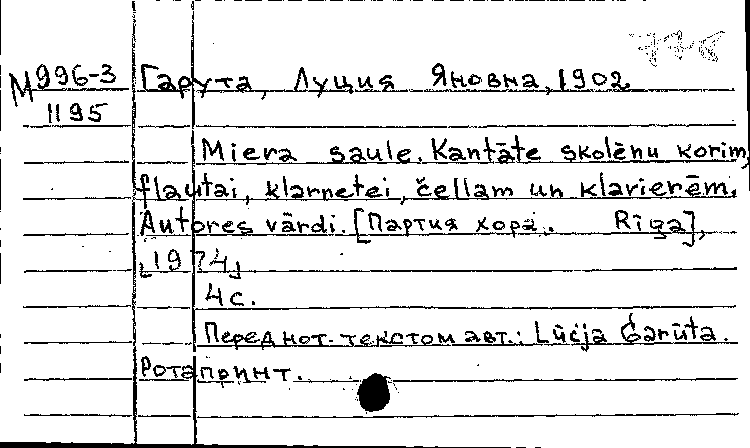 М996-3 Гарута, Луция Яновна, 1902
1195
Miera saule. Kantāte skolēnu korim,
flautai, klarnetei, čellam un klavierēm.
Autores vārdi. [Партия хора. Rīga],
[1974]
4с.
Перед нот. текстом авт.: Lūcija Garūta.
Ротапринт.